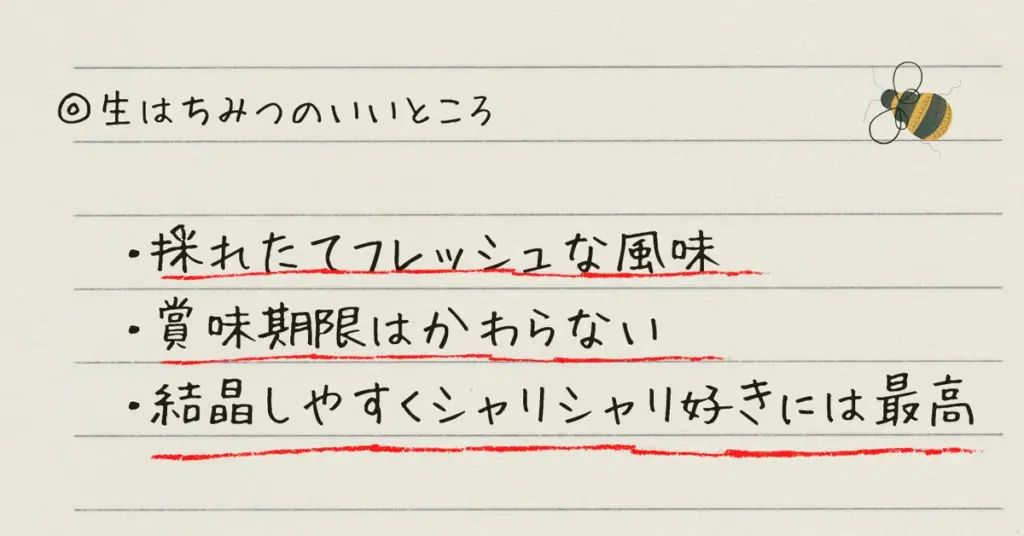 ◎生はちみつのいいところ
・採れたてフレッシュな風味
・賞味期限はかわらない
・結晶しやすくシャリシャリ好きには最高